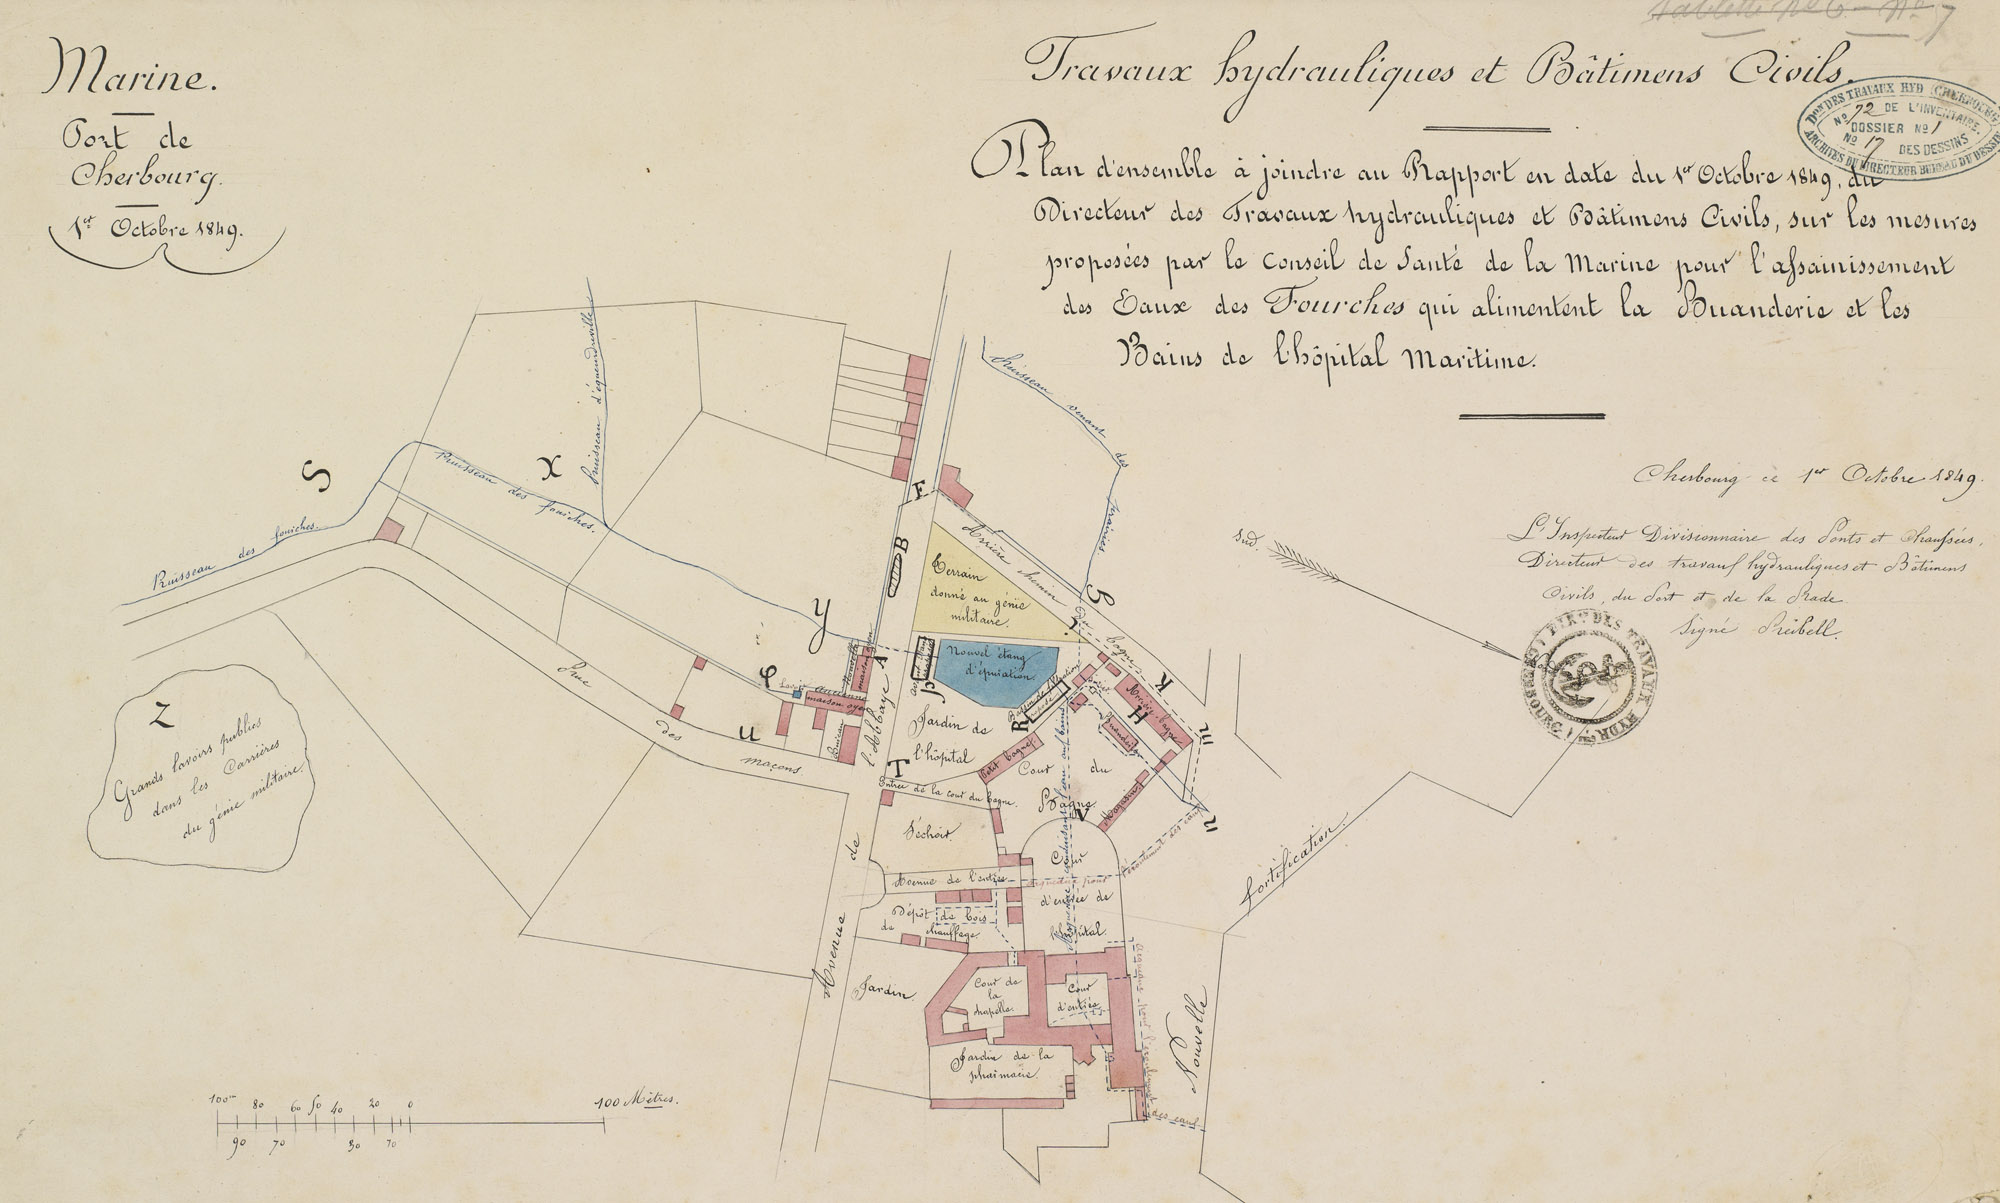 Marine.
Port de
Cherbourg.
1er Octobre 1849.
Tablette No 6 — No 7
Travaux hydrauliques et Bâtimens Civils.
Plan d'ensemble à joindre au Rapport en date du 1er Octobre 1849, du
Directeur des Travaux hydrauliques et Bâtimens Civils, sur les mesures
proposées par le Conseil de Santé de la Marine pour l'assainissement
des Eaux des Fourches qui alimentent la Buanderie et les
Bains de l'hôpital Maritime.
DES TRAVAUX HYD (CHERBOURG)
No 72 DE L'INVENTAIRE.
DOSSIER No 1
No 17 DES DESSINS
ARCHIVES DU DIRECTEUR BUREAU DU DESSIN
Cherbourg ce 1er Octobre 1849.
L'Inspecteur Divisionnaire des Ponts et Chaussées,
Directeur des travaux hydrauliques et Bâtimens
Civils, du Port et de la Rade
Signé Reibell.
Sud.
Ruisseau d'équeurdreville
Ruisseau venant des prairies.
S
X
Ruisseau des fourches.
Ruisseau des fourches.
F
B
Arrière chemin du bagne
Terrain
donné au génie
militaire.
G
Y
Nouvel étang
d'épuration.
P
A
φ
Lavoir
ancienne
maison
U
Rue des maçons
Z
Grands lavoirs publics
dans les Carrières
du génie militaire.
Jardin de
l'hôpital
R
K
H
Arrière-bagne
Buanderie
Petit bagne
Cour du
Bagne.
V
Magasin
m
n
T
Entrée de la cour du bagne.
Séchoir
Avenue de l'entrée
Dépôt de bois
de chauffage.
Cour
d'entrée de
l'hôpital.
Jardin.
Cour de
la
chapelle.
Cour
d'entrée
Jardin de la
pharmacie.
Avenue de l'Abbaye
des eaux
Nouvelle fortification.
100m 80 60 50 40 20 0 100 Mètres.
90 70 30 10